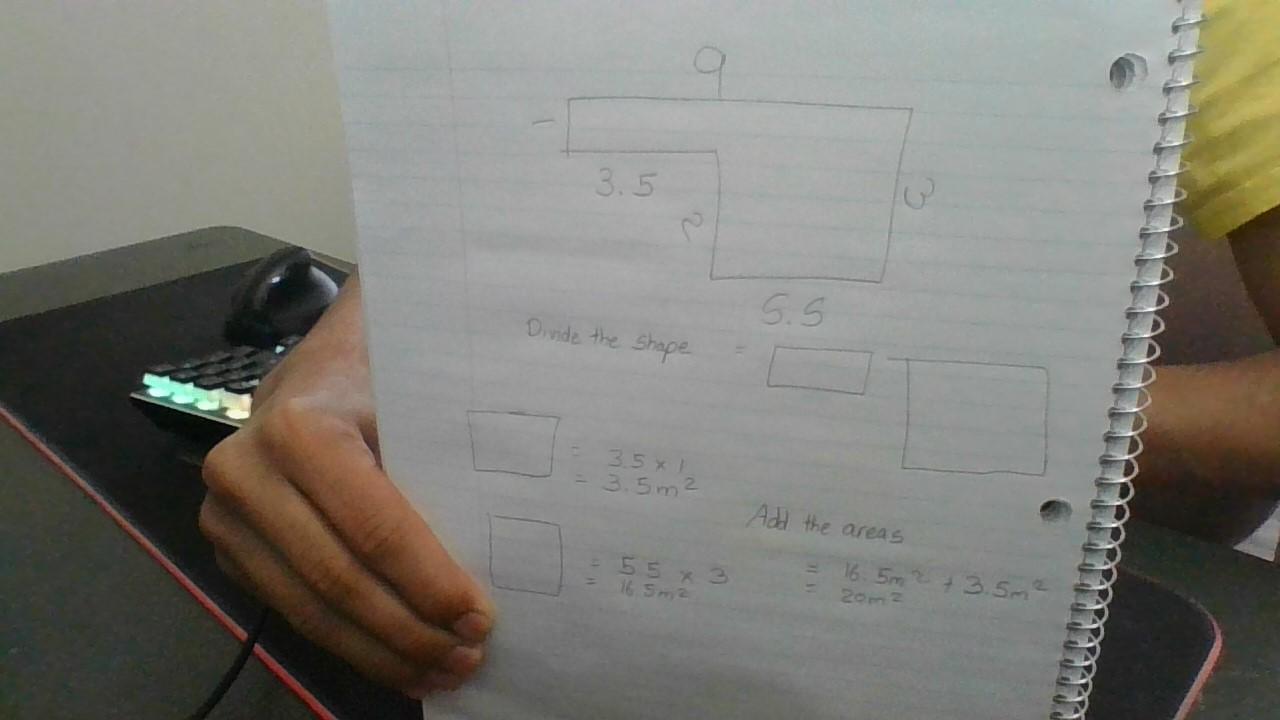 9
1
3.5
2
3
5.5
Divide the shape =
= 3.5 x 1
= 3.5m²
Add the areas
= 5.5 x 3
= 16.5m²
= 16.5m² + 3.5m²
= 20m²